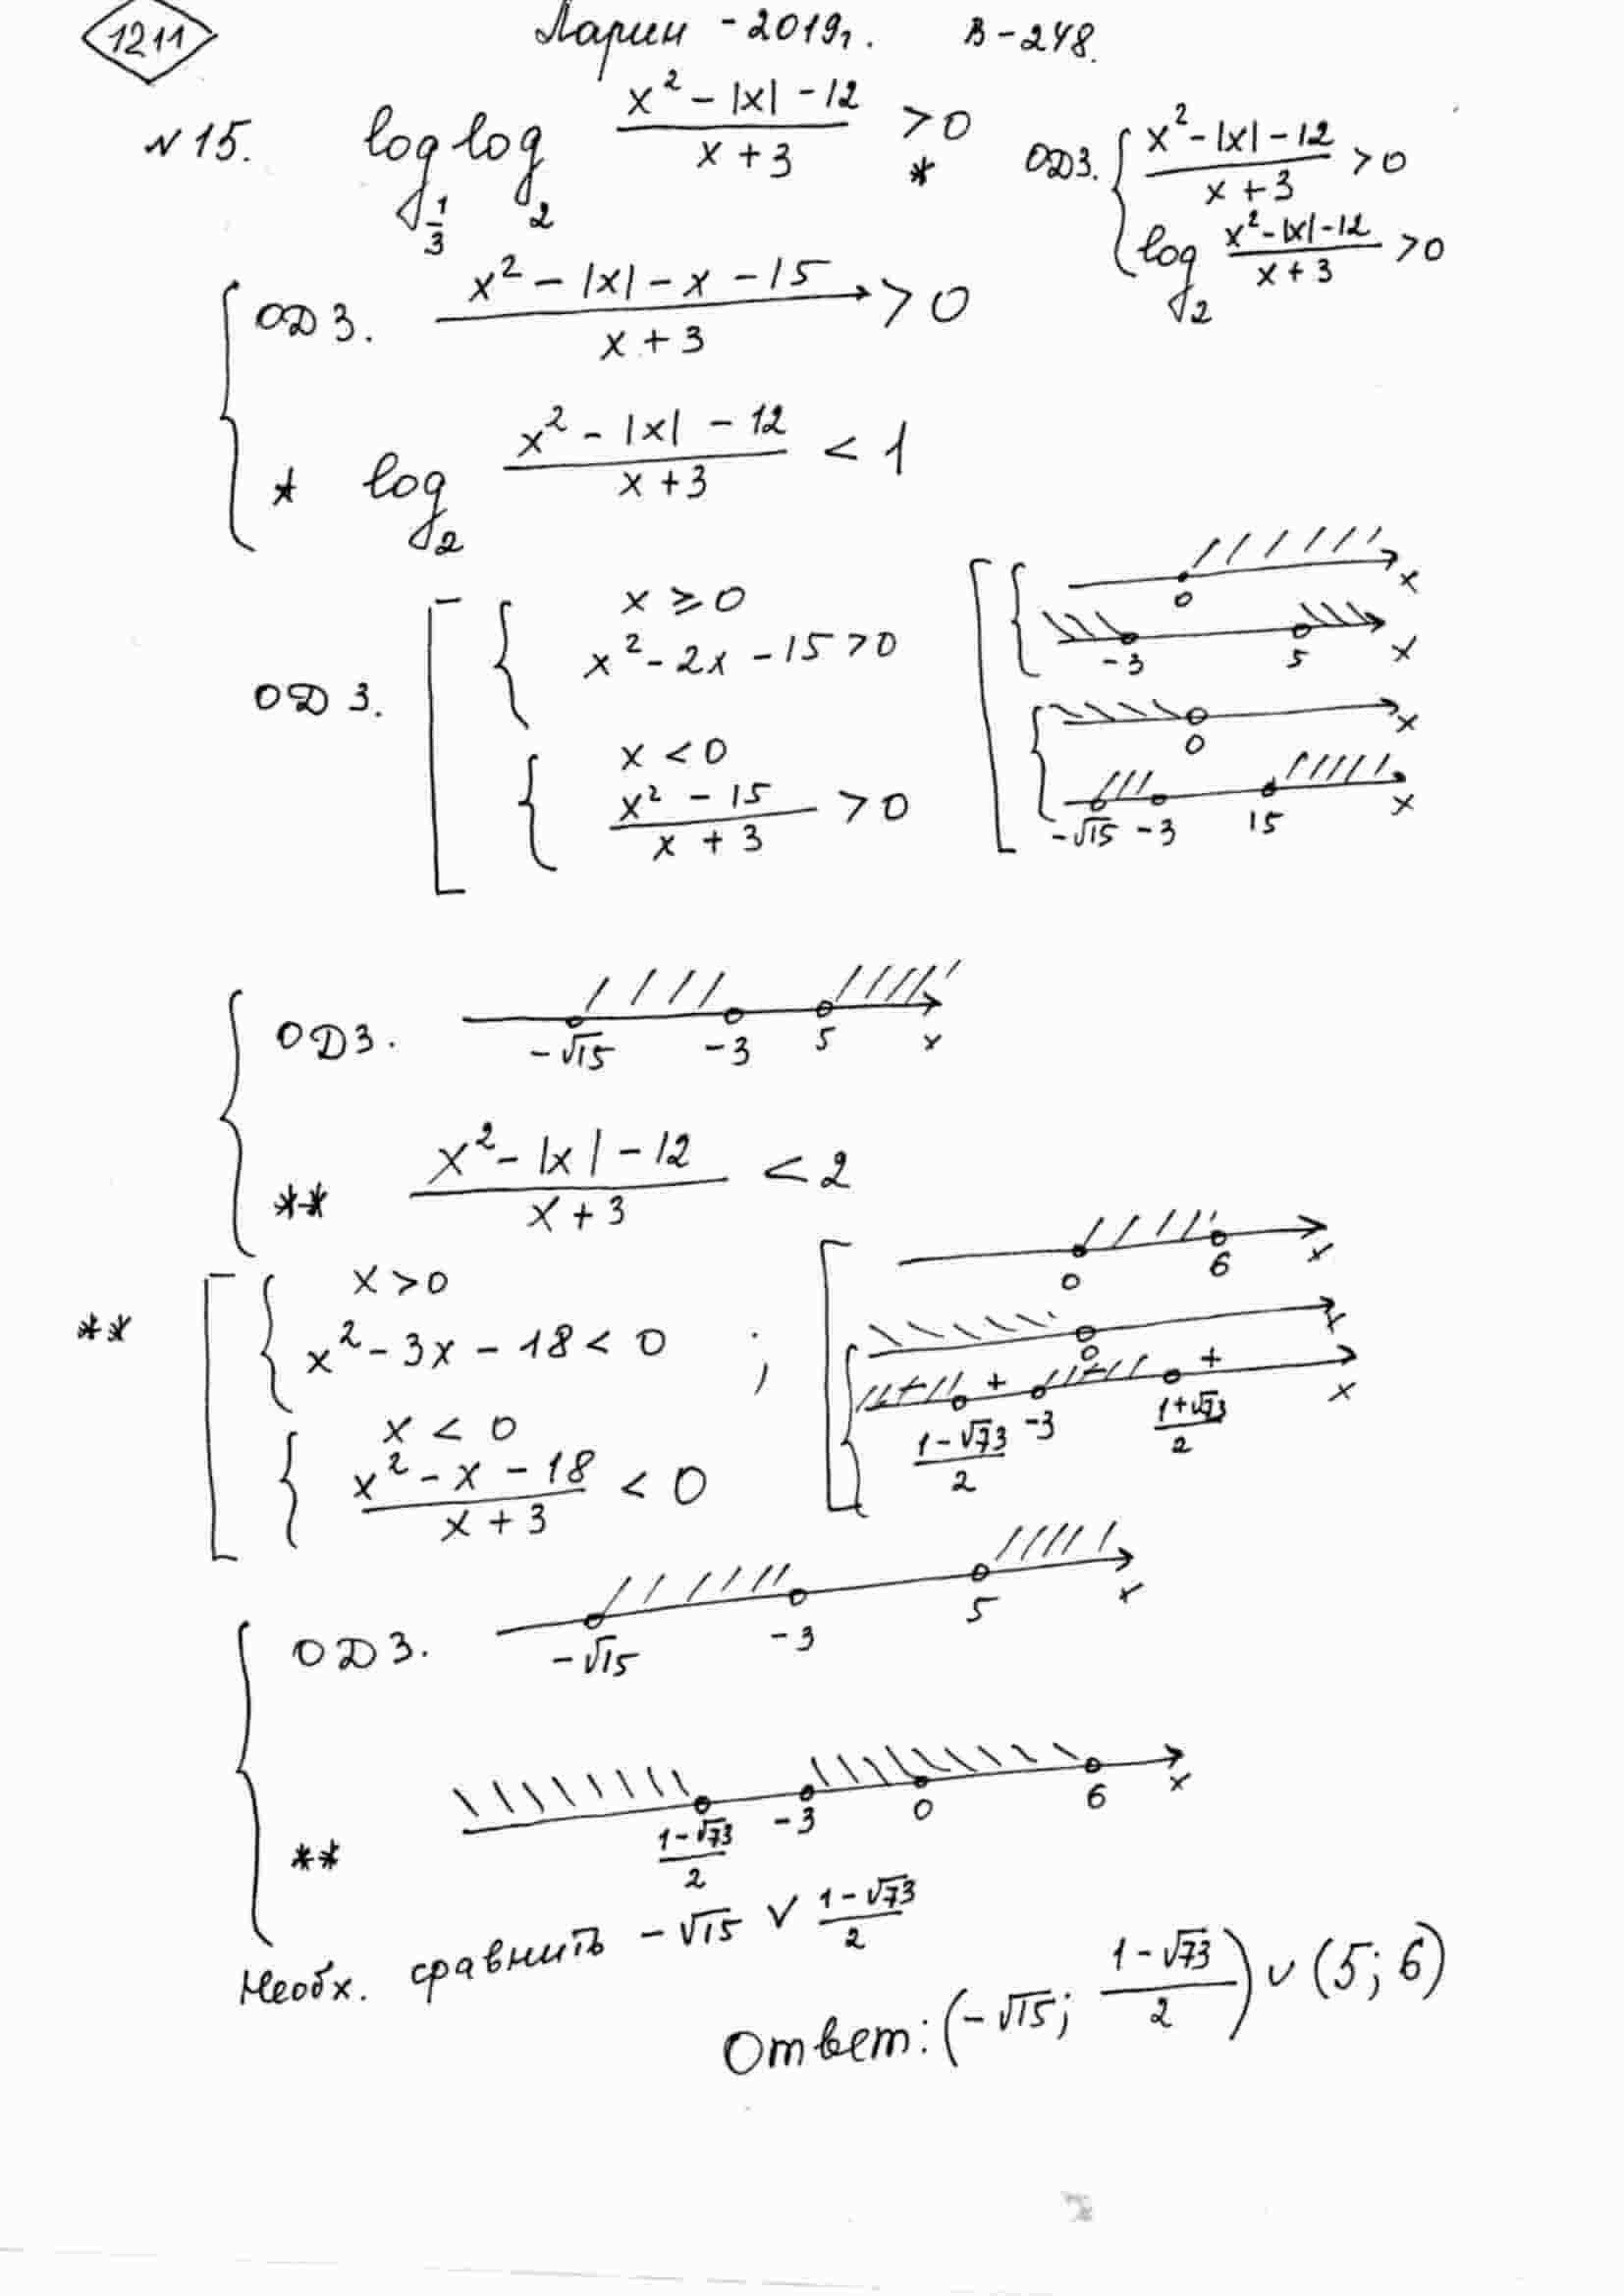 1211 Ларин - 2019г. В-248.
№15. log_{1/3} log_2 (x² - |x| - 12)/(x + 3) > 0 *
ОДЗ. { (x² - |x| - 12)/(x + 3) > 0
log_2 (x² - |x| - 12)/(x + 3) > 0
{ ОДЗ. (x² - |x| - x - 15)/(x + 3) > 0
* log_2 (x² - |x| - 12)/(x + 3) < 1
ОДЗ. [ { x ≥ 0
x² - 2x - 15 > 0
{ x < 0
(x² - 15)/(x + 3) > 0
[ { 0 x
-3 5 x
{ 0 x
-√15 -3 15 x
{ ОДЗ. -√15 -3 5 x
** (x² - |x| - 12)/(x + 3) < 2
** [ { x > 0
x² - 3x - 18 < 0 ;
{ x < 0
(x² - x - 18)/(x + 3) < 0
[ 0 6 x
{ 0 x
+ +
(1 - √73)/2 -3 (1 + √73)/2 x
{ ОДЗ. -√15 -3 5 x
** (1 - √73)/2 -3 0 6 x
Необх. сравнить -√15 ∨ (1 - √73)/2
Ответ: (-√15; (1 - √73)/2) ∪ (5; 6)